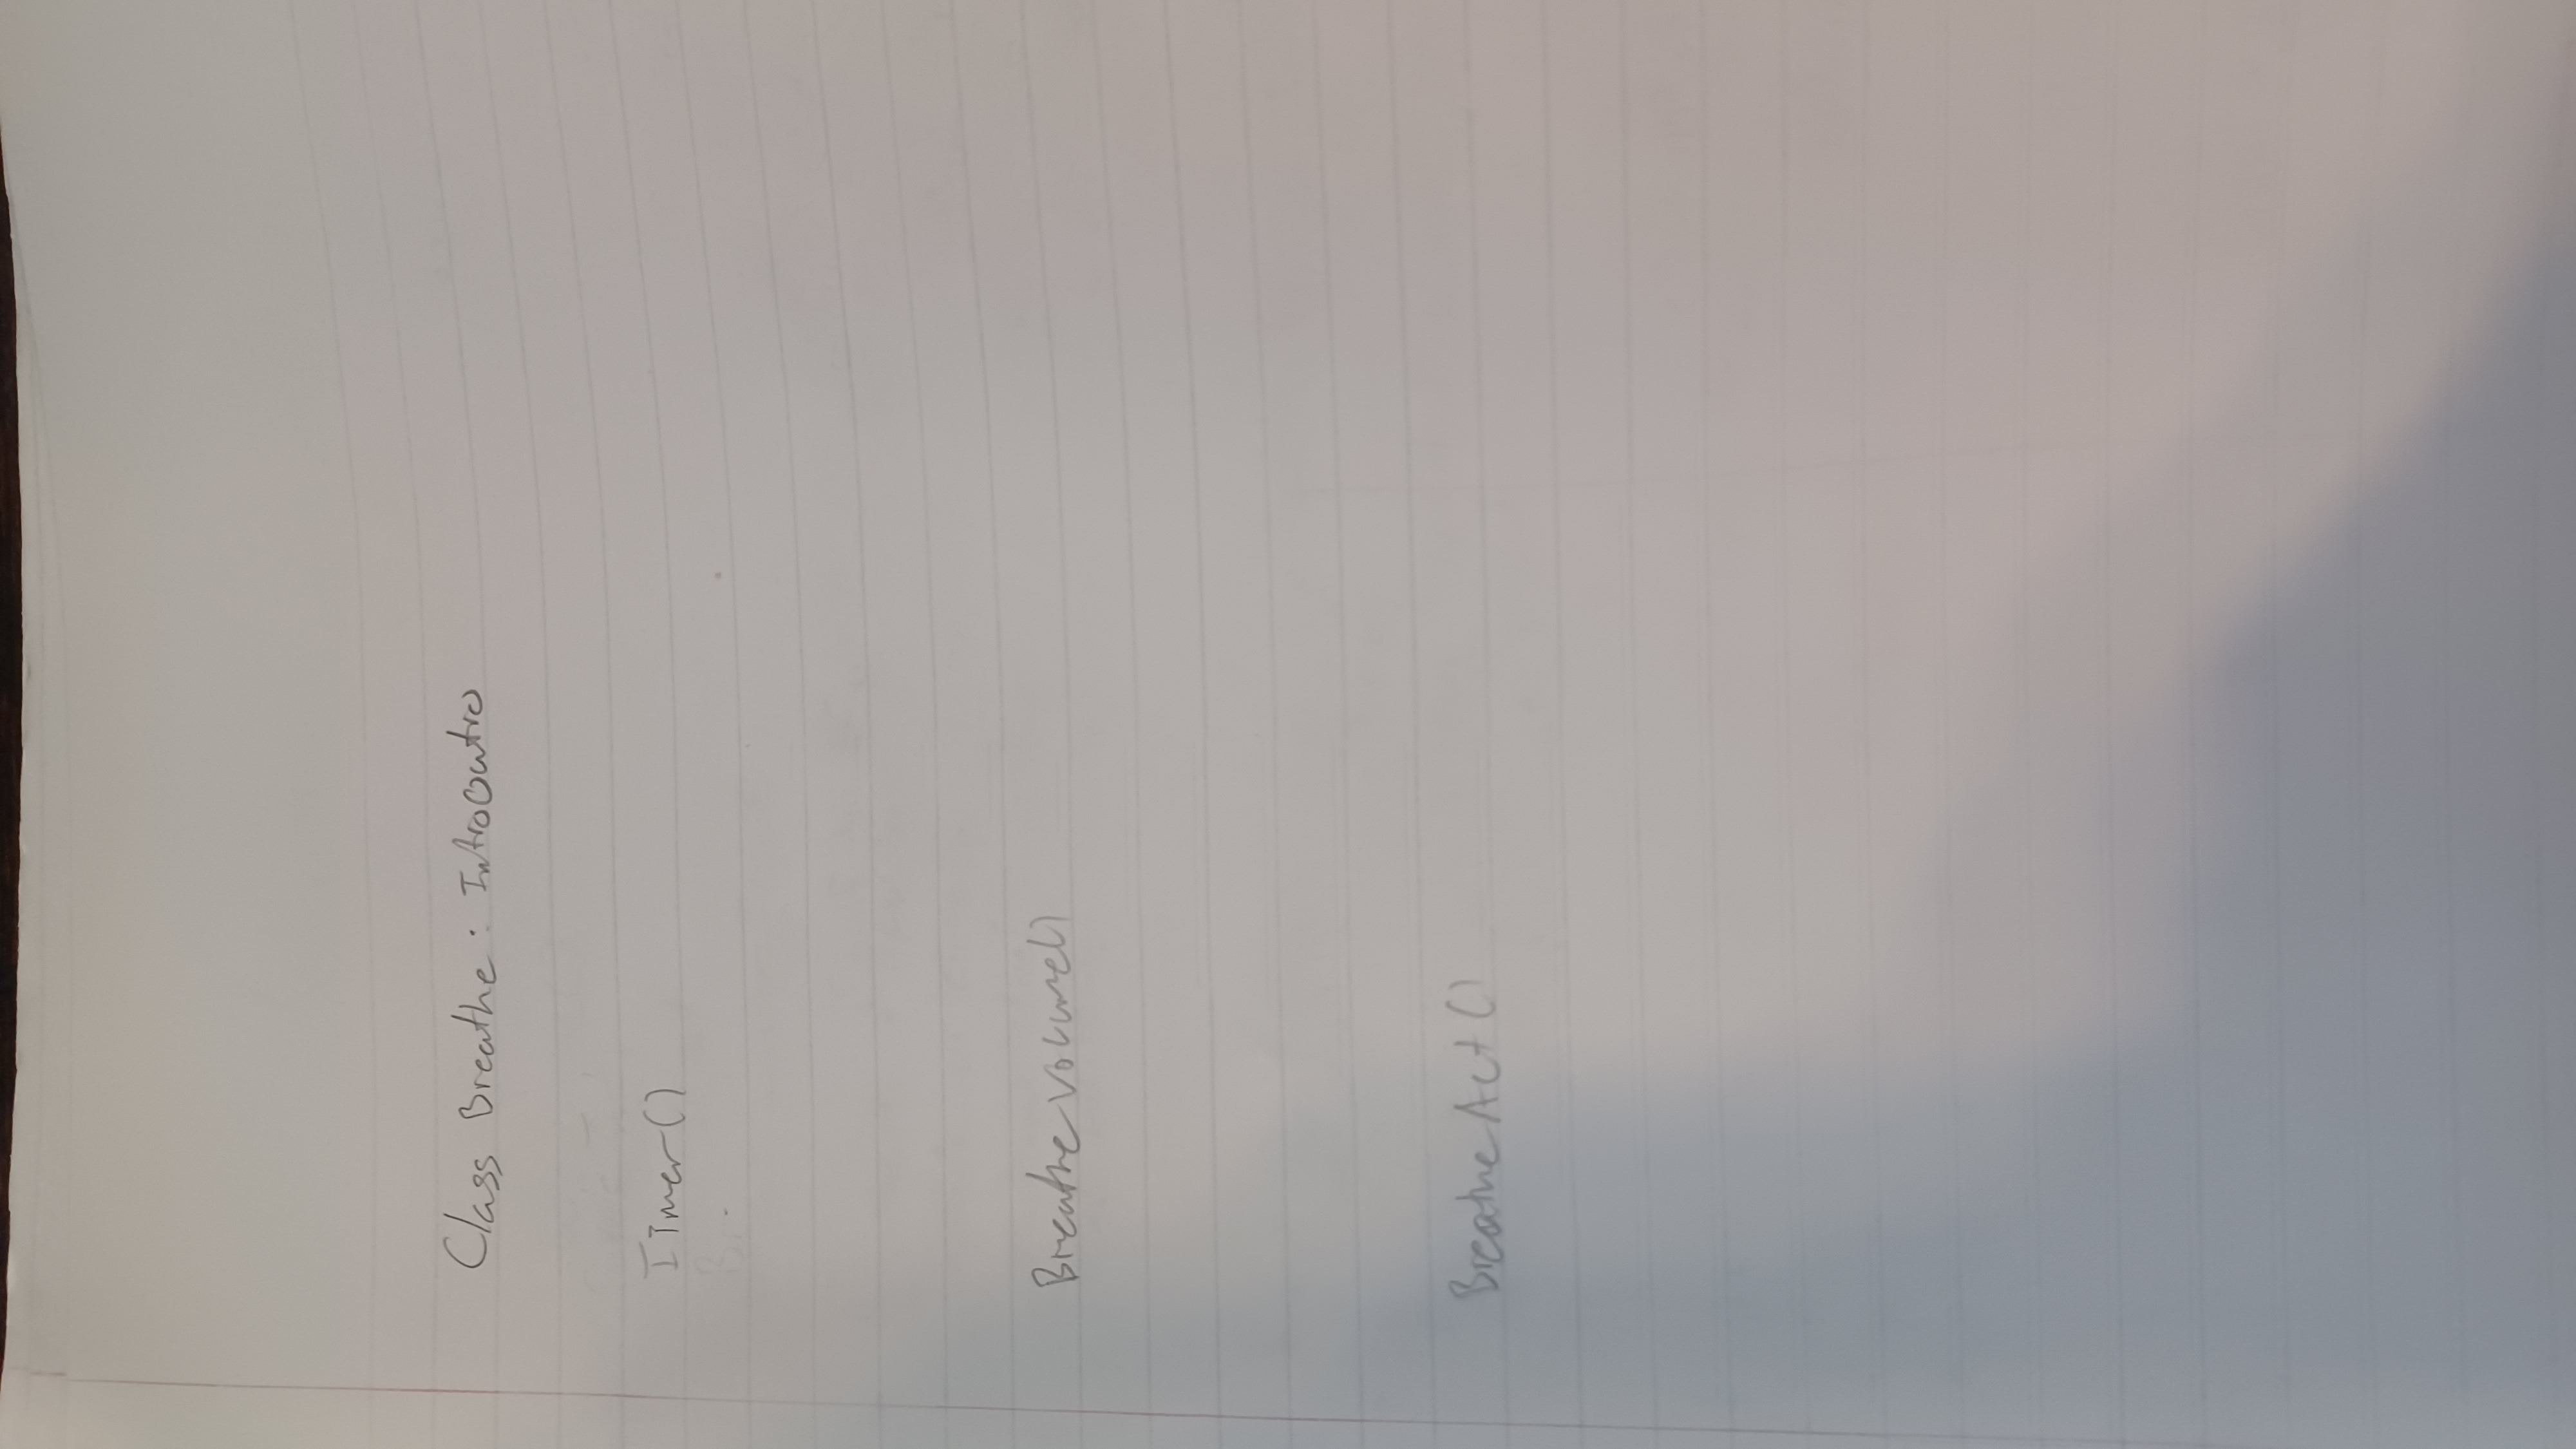 Class Breathe : IntroOutro
ITimer()
Br
BreatheVolume()
BreatheAct()